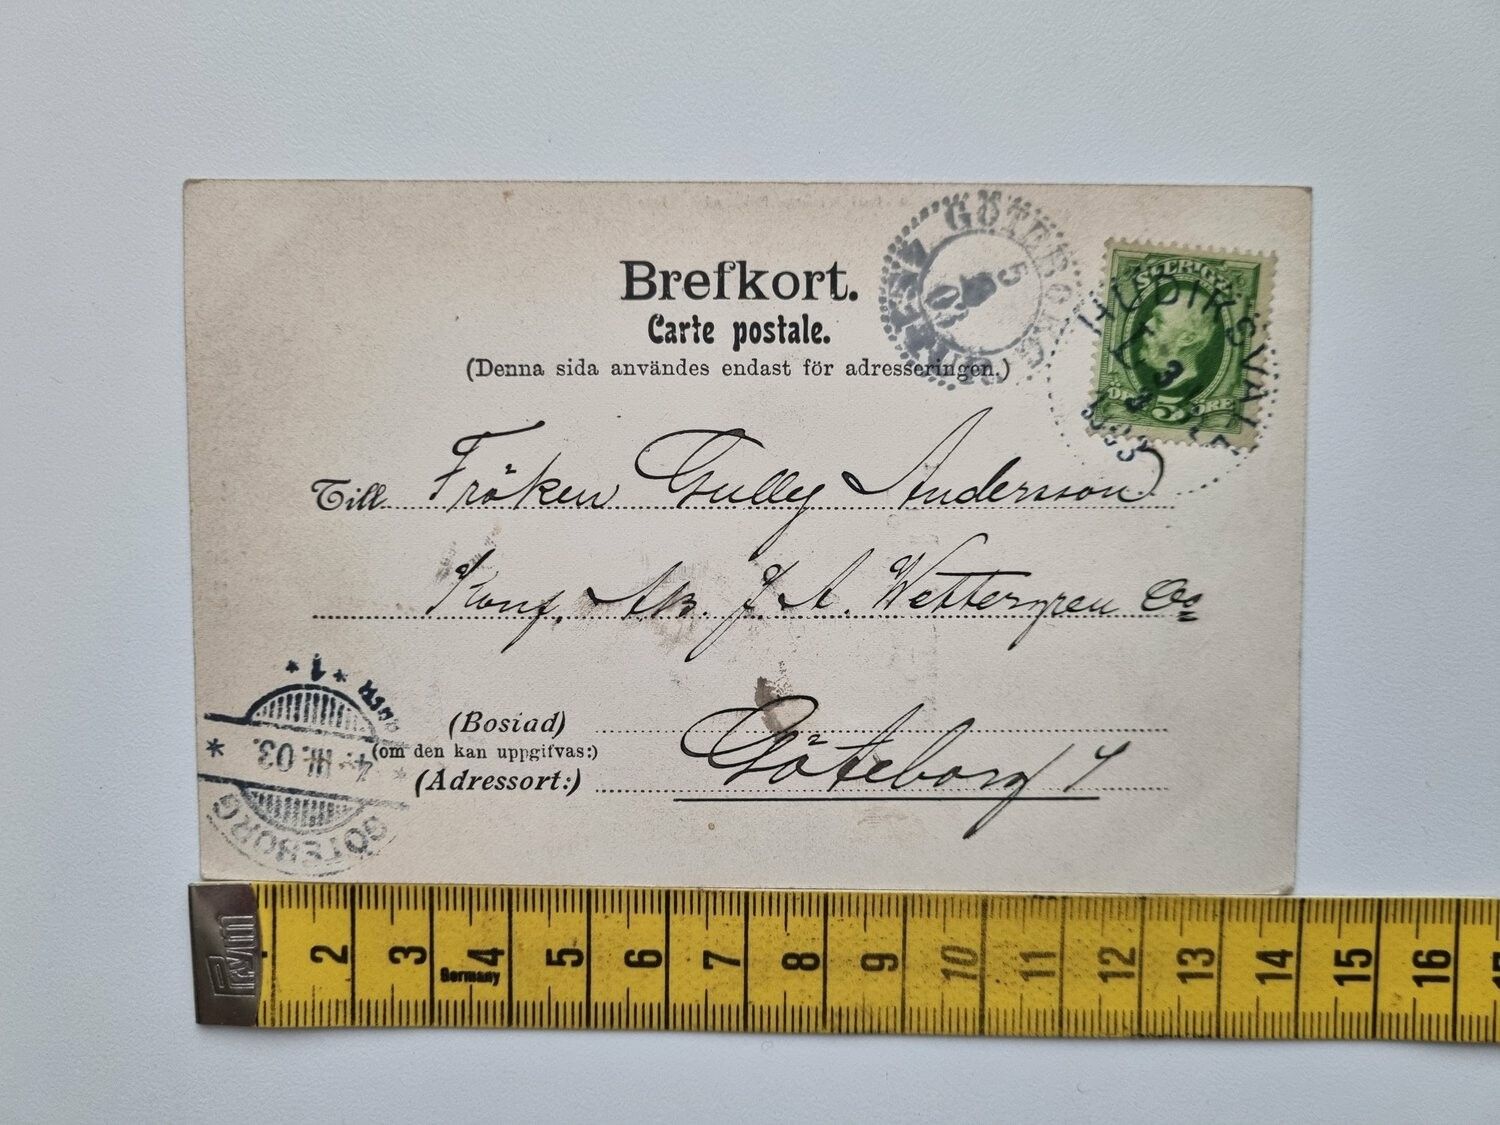 Brefkort.
Carte postale.
(Denna sida användes endast för adresseringen.)
GÖTEBORG
5
03
SVERIGE
5 ÖRE
HUDIKSVALL
3
3
Till Fröken Gully Andersson
Konf. AB. J. A. Wettergren Co
(Bostad)
(om den kan uppgifvas:)
(Adressort:)
Göteborg
* 1 *
4. III. 03.
GÖTEBORG
Prym
2 3 4 5 6 7 8 9 10 11 12 13 14 15 16
Germany